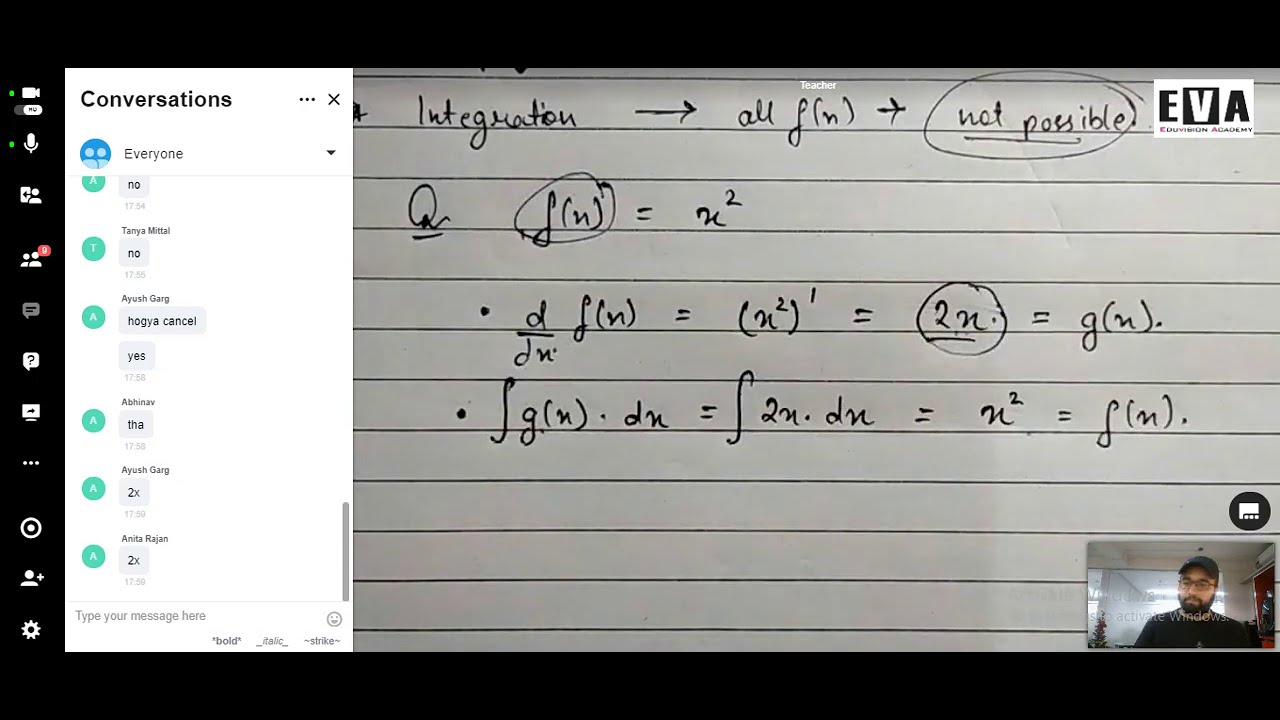 Conversations
Everyone
A
no
17:54
Tanya Mittal
T
no
17:55
Ayush Garg
A
hogya cancel
yes
17:58
Abhinav
A
tha
17:58
Ayush Garg
A
2x
17:59
Anita Rajan
A
2x
17:59
Type your message here
*bold* _italic_ ~strike~
HD
9
Teacher
EVA
EDUVISION ACADEMY
Integration → all f(x) → not possible.
Q f(x) = x²
• d/dx f(x) = (x²)' = 2x. = g(x).
• ∫g(x)· dx = ∫2x· dx = x² = f(x).
to activate Windows.